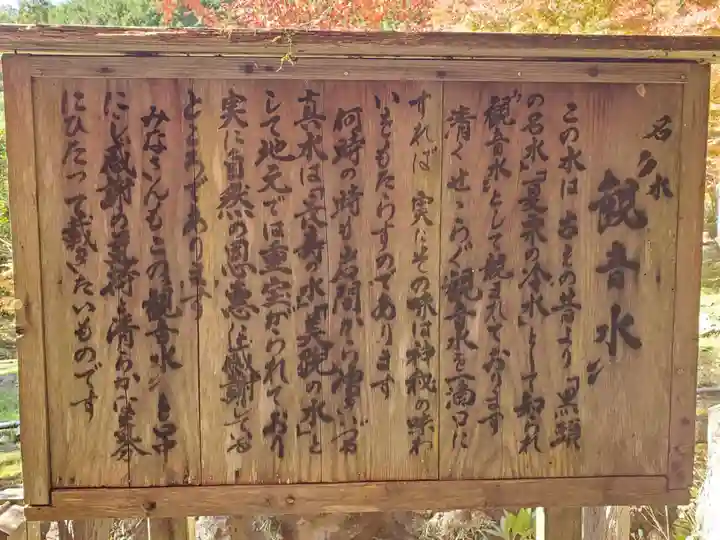 名水
観音水
この水は古との昔より「黒頭
の名水」「夏来の冷水」として知られ
"観音水"として親まれております
清くせゝらぐ観音水を一滴口に
すれば 実にその味は神秘の味わ
いをもたらすのであります
何時の時も岩間から湧いづる
真水は「長寿の水」「美貌の水」と
して地元では重宝がられており
実に自然の恩恵に感謝してゐる
ところであります
みなさんもこの"観音水"を口
にし感謝の気持と清らかな姿
にひたって戴きたいものです